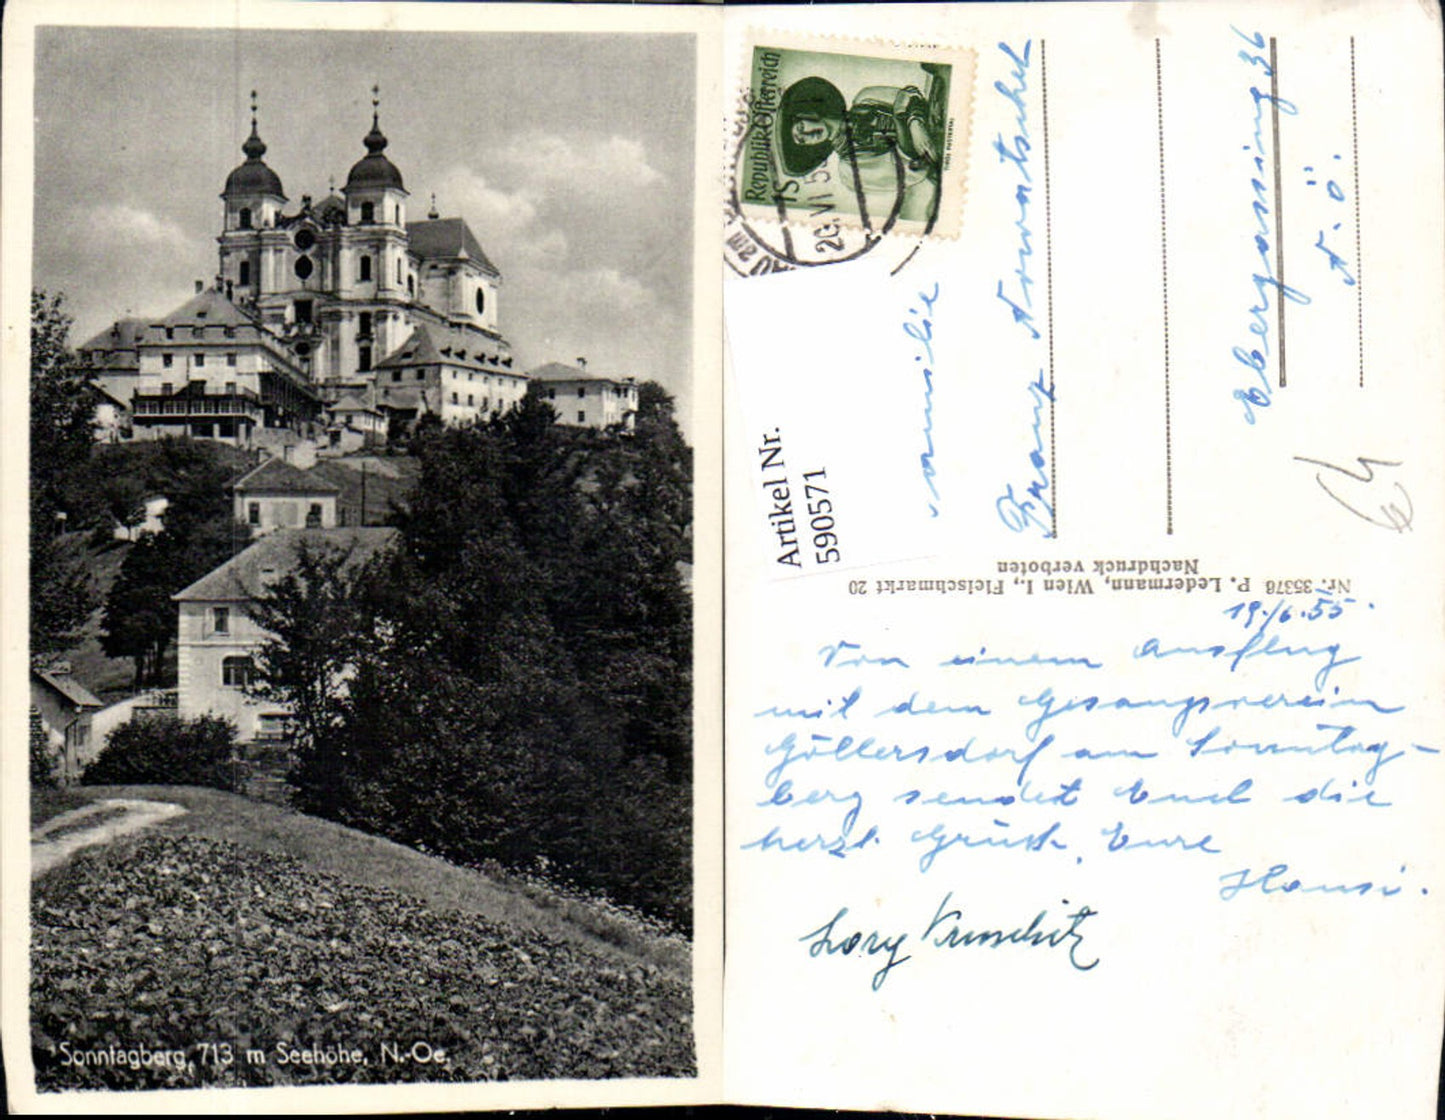 Sonntagberg, 713 m Seehöhe, N.-Oe.
Republik Österreich
TIROL PUSTERTAL
15
20.VI.5
Artikel Nr.
590571
Familie
Franz
Ebergassing 36
N.Ö.
Nr. 35378 P. Ledermann, Wien I., Fleischmarkt 20
Nachdruck verboten
19./6.55.
Von einem Ausflug
mit dem Gesangsverein
Göllersdorf am Sonntag-
berg sendet Euch die
herzl. Grüße, Eure
Hansi.
Lory